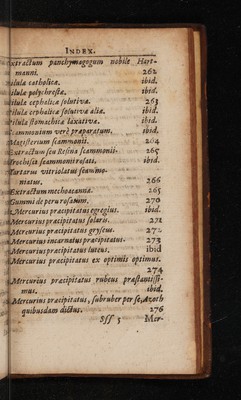 INDEX.
Extractum panchymagogum nobile Hart-
manni. 262
Pilula catholica. ibid.
Pilula polychresta. ibid.
Pilula cephalica solutiva. 263
Pilula cephalica solutiva alia. ibid.
Pilula stomachica laxativa. ibid.
Scammonium verè præparatum. ibid.
Magisterium scammonii. 264
Extractum seu Resina scammonii. 265
Trochisci scammoni rosati. ibid.
Tartarus vitriolatus scammo-
niatus. 266
Extractum mechoacanna. 265
Gummi de peru rosatum. 270
Mercurius præcipitatus egregius. ibid.
Mercurius præcipitatus solaris. 271
Mercurius præcipitatus gryseus. 272
Mercurius incarnatus præcipitatus. 273
Mercurius præcipitatus luteus. ibid
Mercurius præcipitatus ex optimis optimus.
274
Mercurius præcipitatus rubeus præstantissi-
mus. ibid.
Mercurius præcipitatus, subruber per se, Azoth
quibusdam dictus. 276
Sss 5 Mer-